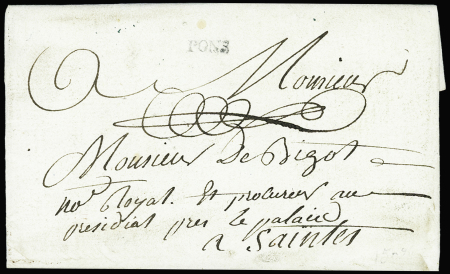 PONS
A Monsieur
Monsieur De Bigot
no.re Royal. Et procureur au
presidial pres le palais
a Saintes